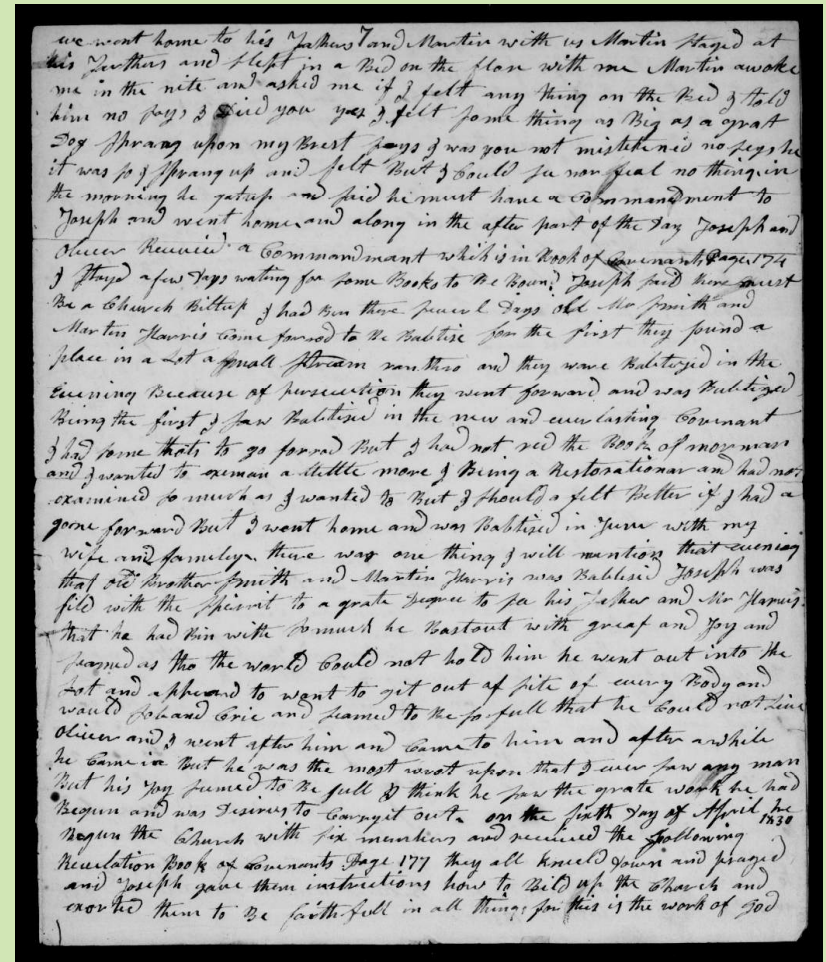 we went home to his Fathers and Martin with us Martin Stayed at
his Farthers and Slept in a Bed on the flore with me Martin awoke
me in the nite and asked me if I felt any thing on the Bed I told
him no says I Did you yes I felt some thing as Big as a grat
Dog Sprang upon my Brest says I was you not mistekened no seys he
it was so I Sprang up and felt But I Could see nor feal nothing in
the morning he gatup and said he must have a Commandment to
Joseph and went home and along in the after part of the Day Joseph and
Oliver Received a Commandmant which is in Book of Covenants Page 174
I Stayd a few Days wating for some Books to Be Bound Joseph said there must
Be a Church Biltup I had Ben there severl Days old Mr Smith and
Martin Harris Come forrod to Be Babtise for the first they found a
place in a Lot a small Stream ran thro and they ware Babtized in the
Evening Because of persecution they went forward and was Babtized
Being the first I saw Babtised in the new and everlasting Covenant
I had some thots to go forrod But I had not red the Book of morman
and I wanted to oxeman a little more I Being a Restorationar and had not
examined so much as I wanted to But I should a felt Better if I had a
gone forward But I went home and was Babtised in June with my
wife and familey there was one thing I will mention that evening
that old Brother Smith and Martin Harris was Babtised Joseph was
fild with the Spirrit to a grate Degree to see his Father and Mr Harris
that he had Bin with so much he Bastout with greaf and Joy and
seamed as tho the world Could not hold him he went out into the
Lot and appeard to want to git out of site of every Body and
would Sob and Crie and seamed to Be so full that he Could not live
Oliver and I went after him and Came to him and after a while
he Came in But he was the most wrot upon that I ever saw any man
But his Joy seemed to Be full I think he saw the grate work he had
Begun and was Desirus to Carry it out on the sixth Day of April he
1830
Begun the Church with six members and received the following
Revelation Book of Covenants Page 177 they all kneeld down and prayed
and Joseph gave them instructions how to Bild up the Church and
exorted them to Be faithfull in all things for this is the work of God